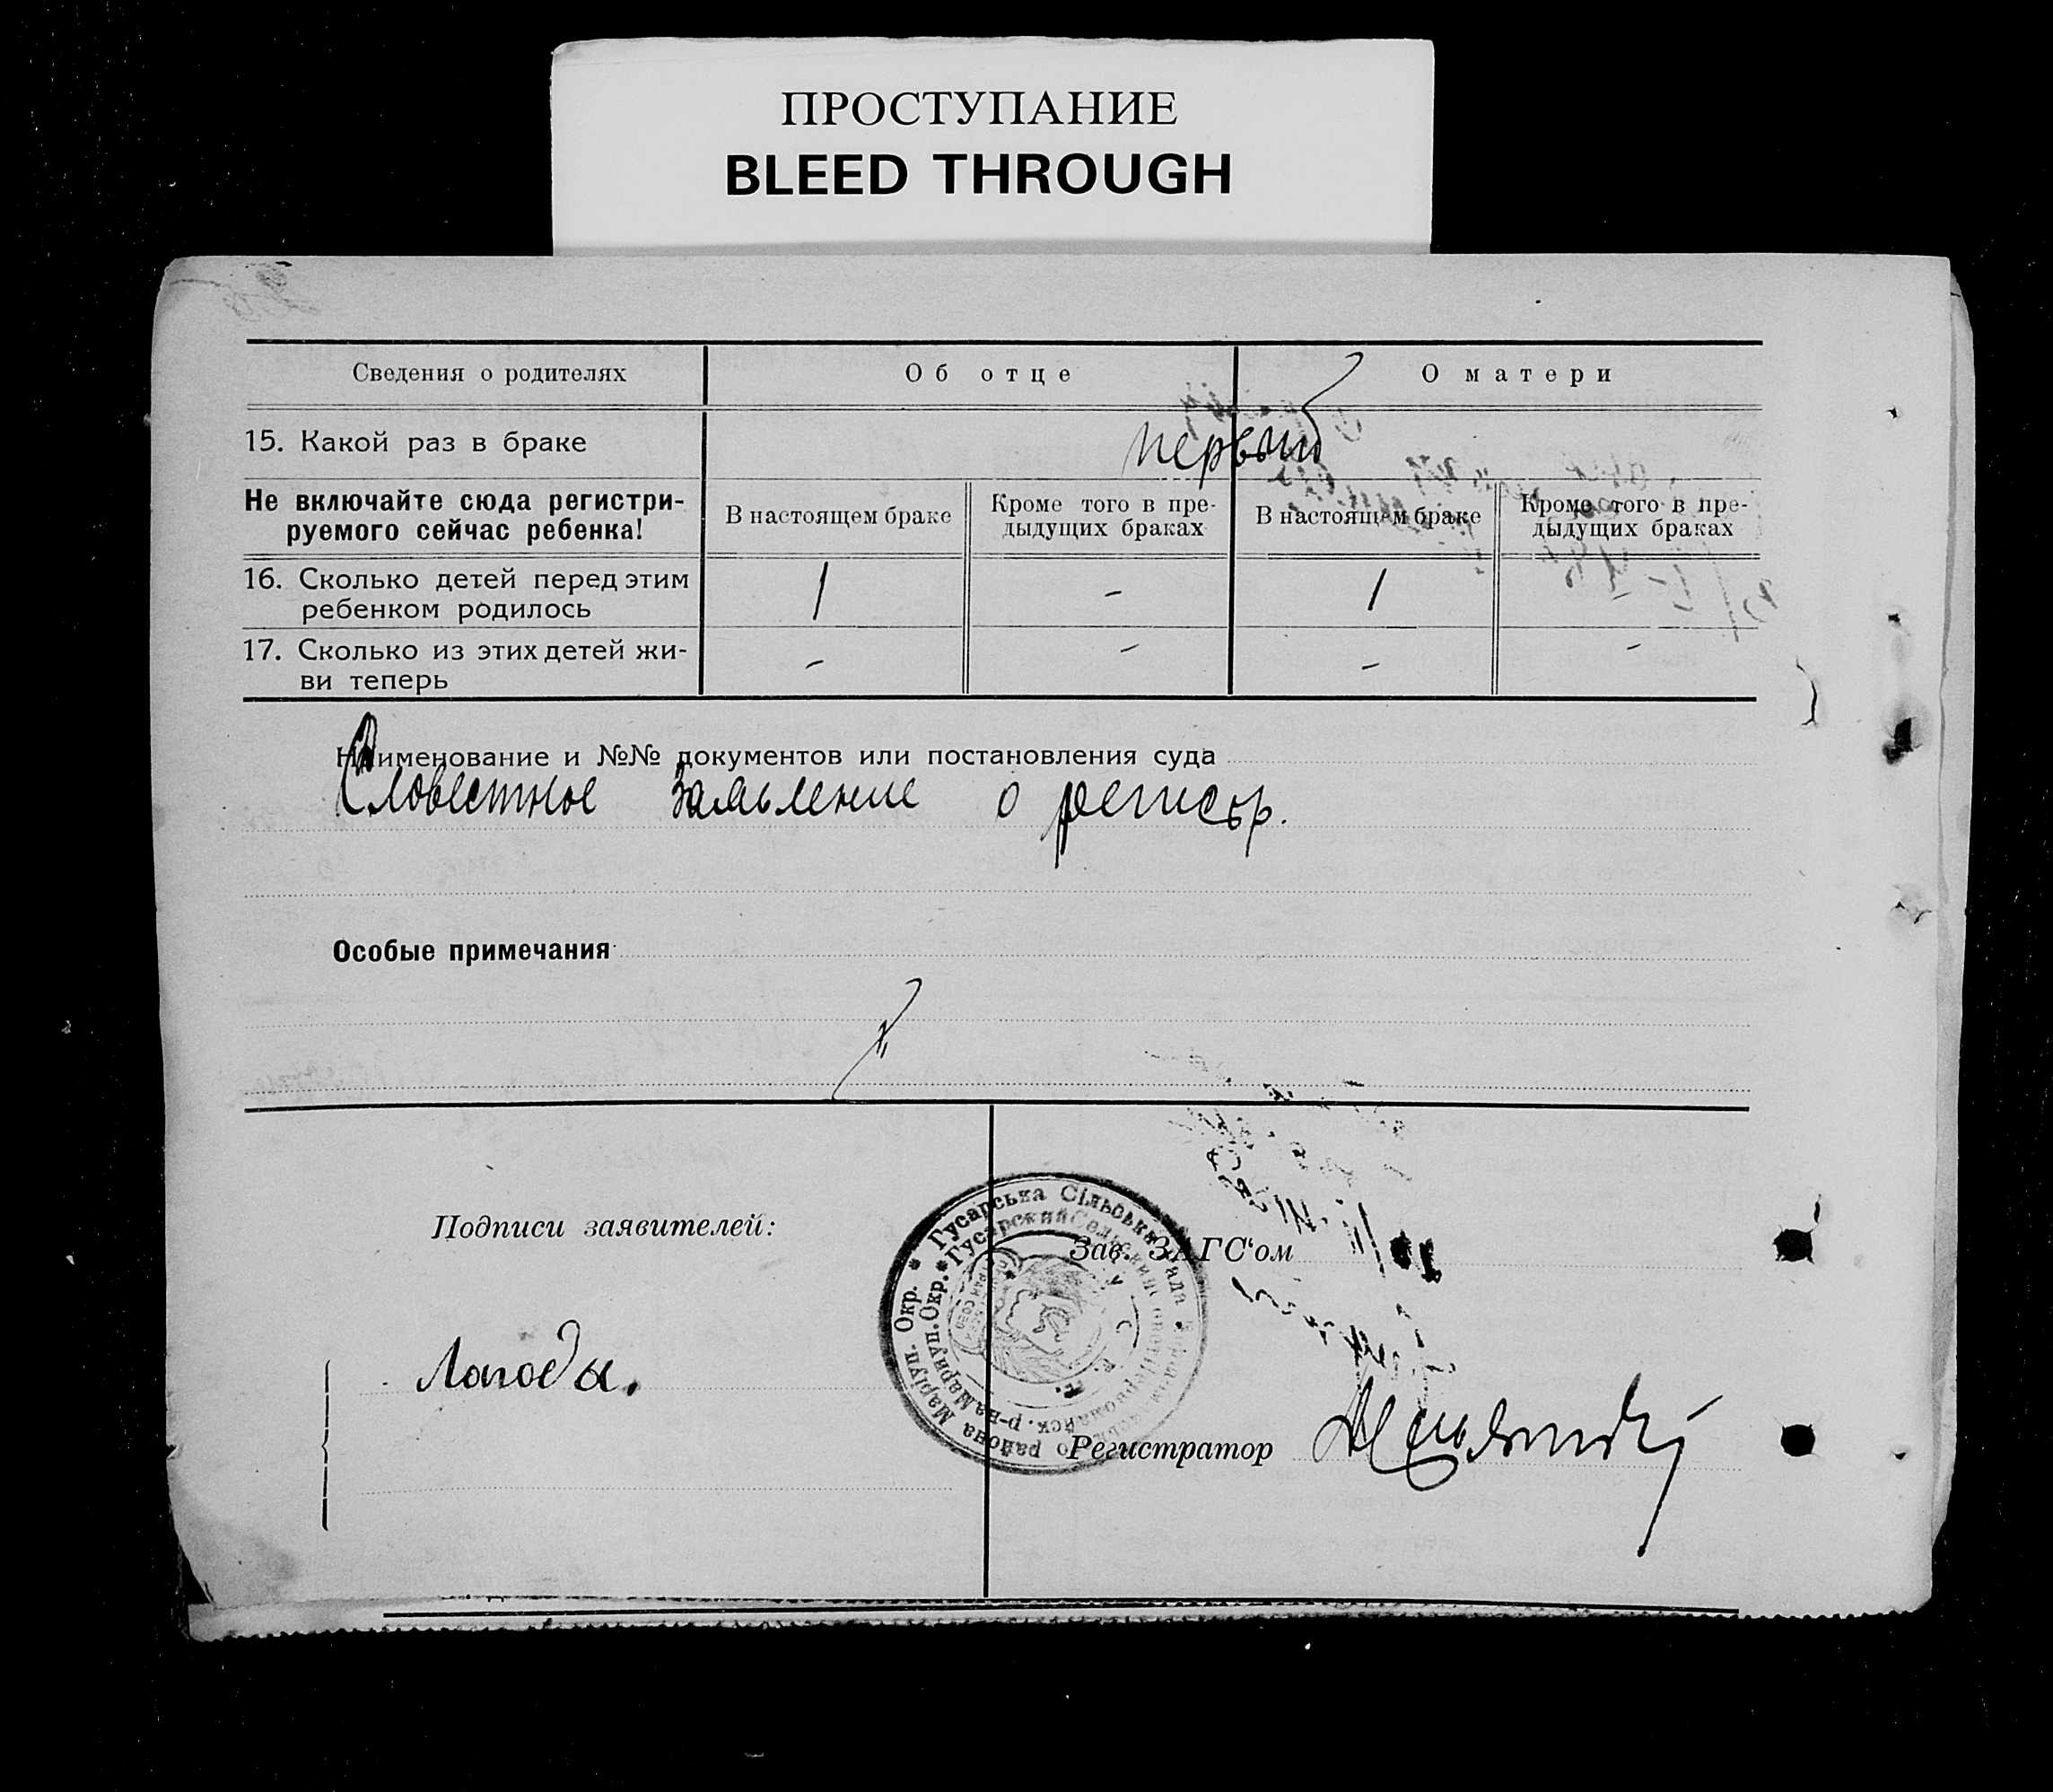 ПРОСТУПАНИЕ
BLEED THROUGH
Сведения о родителях
Об отце
О матери
15. Какой раз в браке
первый
Не включайте сюда регистри-
руемого сейчас ребенка!
В настоящем браке
Кроме того в пре-
дыдущих браках
В настоящем браке
Кроме того в пре-
дыдущих браках
16. Сколько детей перед этим
ребенком родилось
1
-
1
-
17. Сколько из этих детей жи-
ви теперь
-
-
-
-
Наименование и №№ документов или постановления суда
Словестное заявление о регистр.
Особые примечания
Подписи заявителей:
Зав. ЗАГС‘ом
Лагода.
Регистратор
Гусарська Сільська Рада
района Маріуп. Окр.
Гусарский Сельский
Первомайск. р-на Мариуп. Окр.